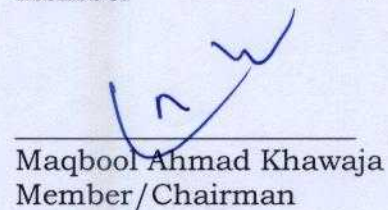 Maqbool Ahmad Khawaja
Member/Chairman